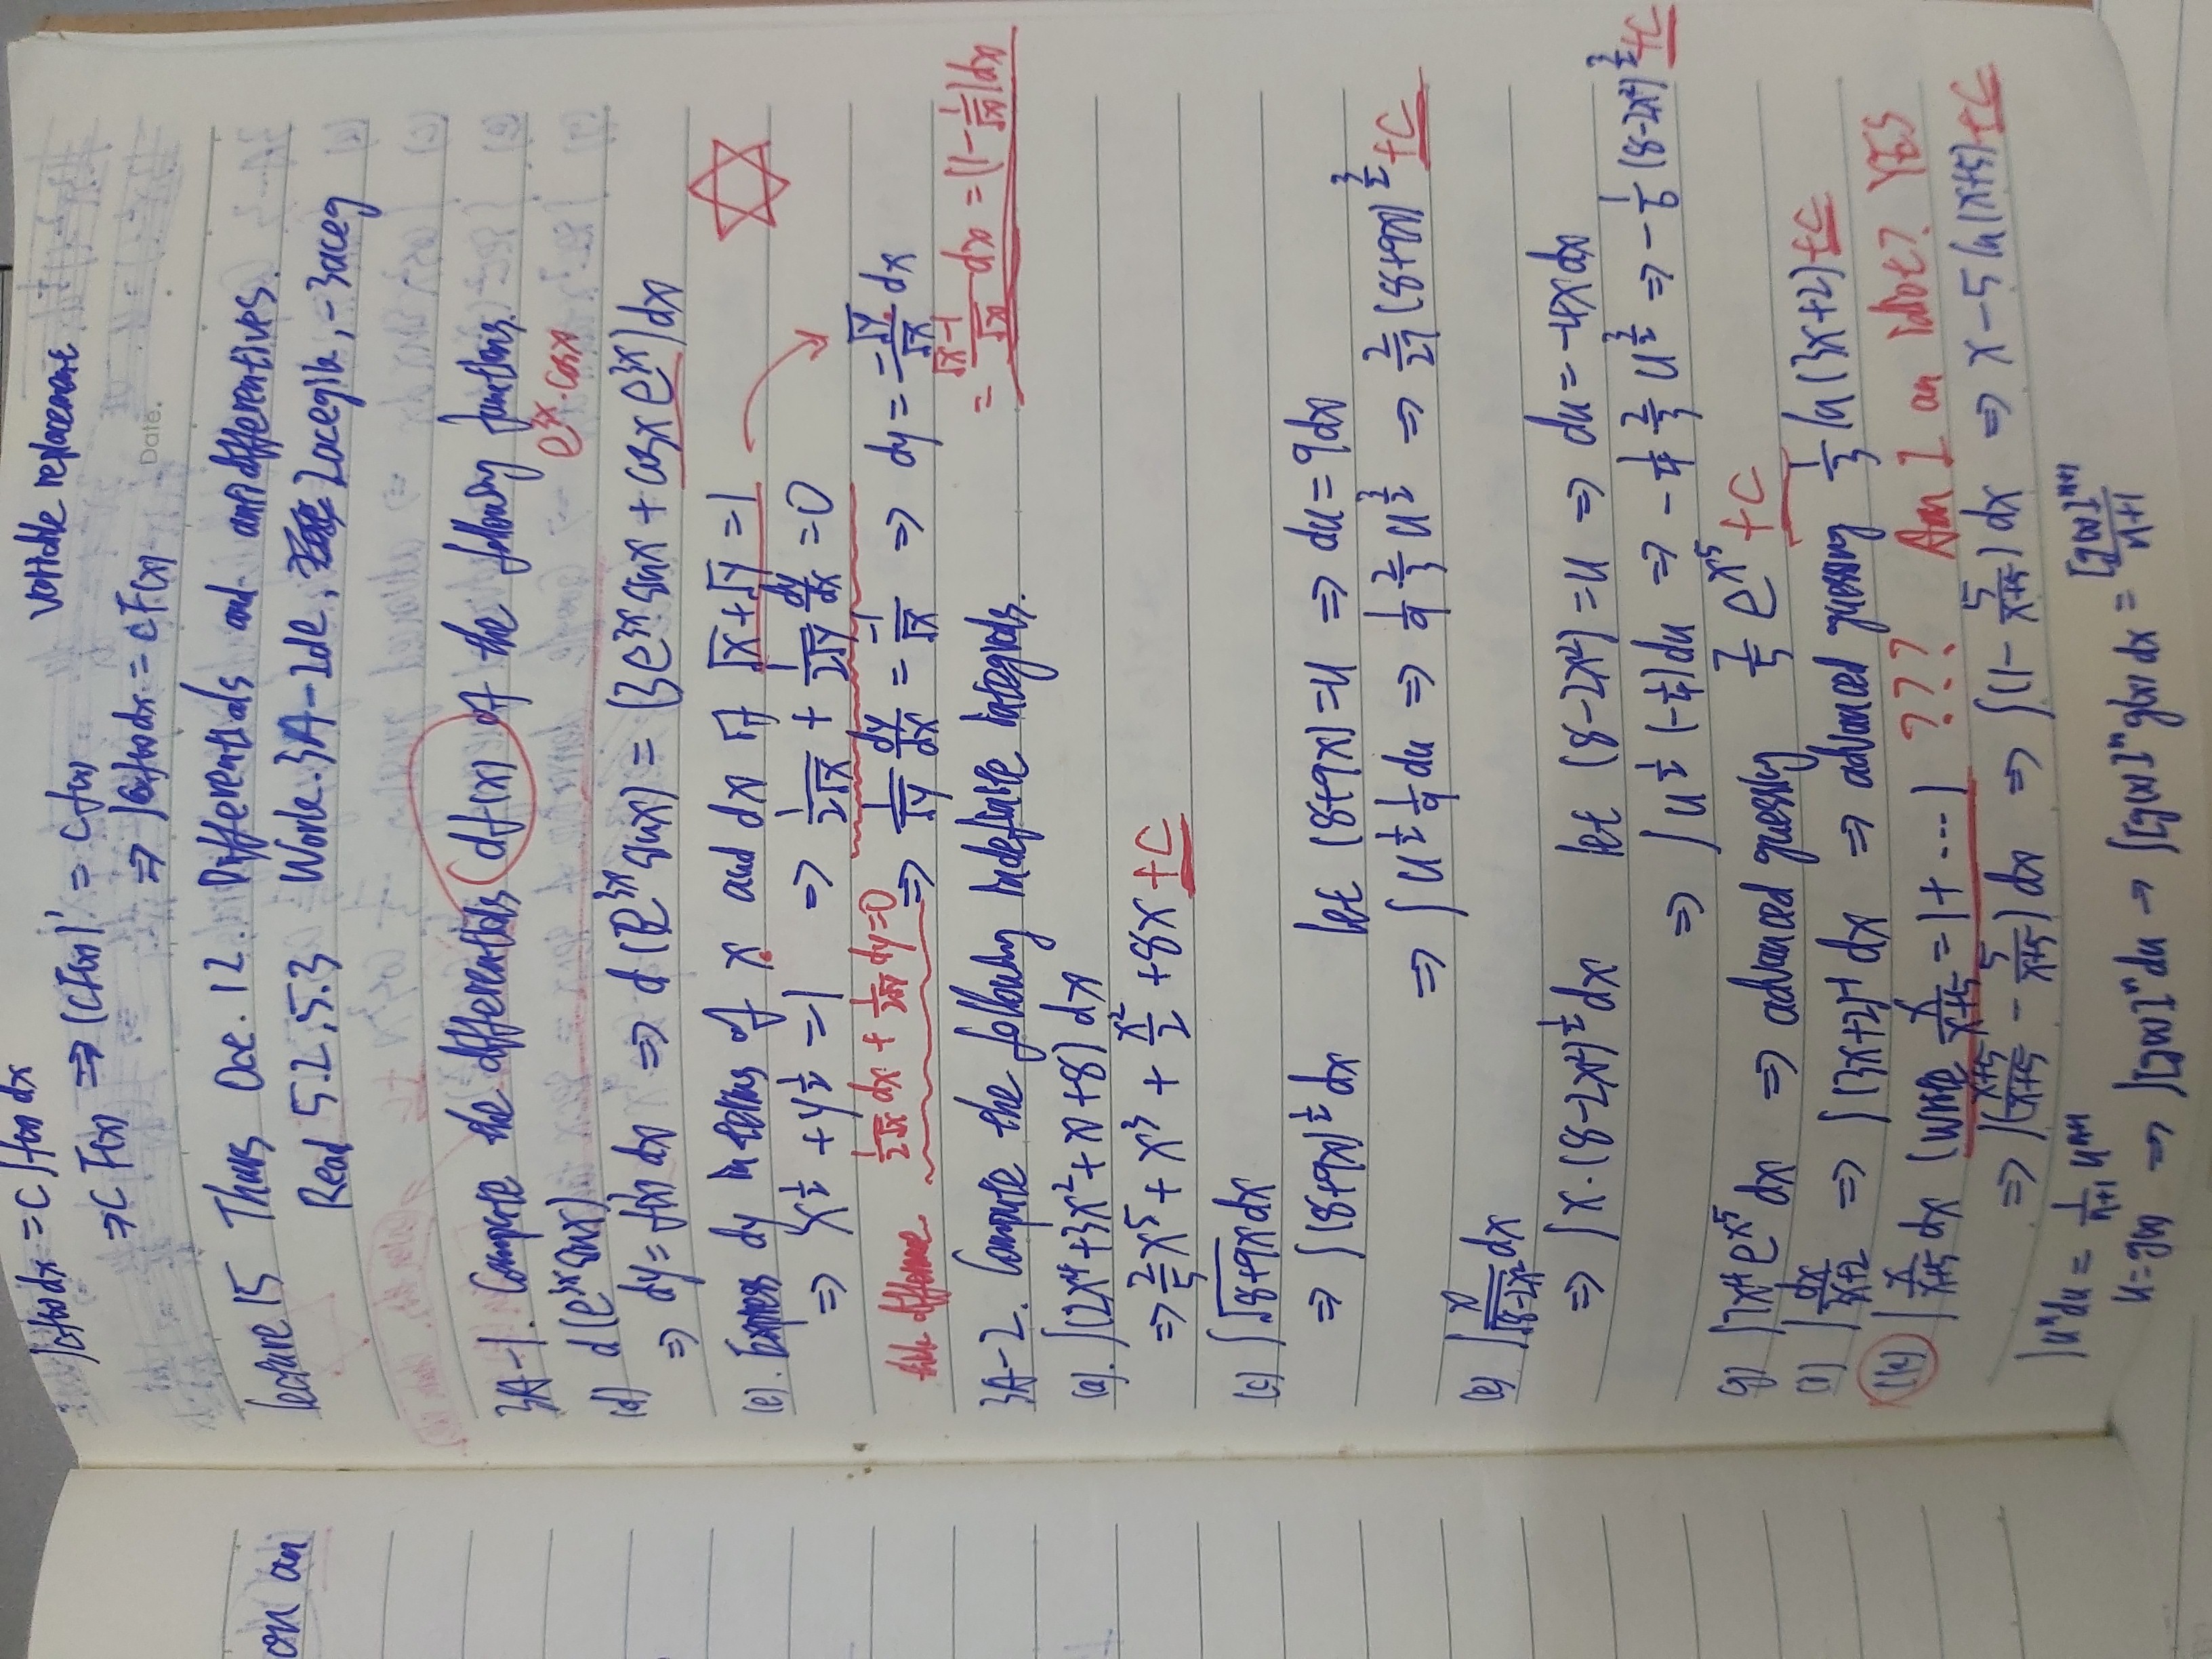 ∫cf(x)dx = c∫f(x)dx
variable replacement
⇒ c F(x) ⇒ (cF(x))' = cf(x)
⇒ ∫cf(x)dx = cF(x)
Date.
on an
lecture 15 Thurs Oct. 12. Differentials and antidifferentives.
Read 5.2, 5.3 Work. 3A-1de, 2acegik, -3aceg
3A-1. Compute the differentials df(x) of the following functions.
(d) d(e^{3x} sinx)
e^{3x}·cosx
⇒ dy = f'(x) dx ⇒ d(e^{3x} sinx) = (3e^{3x} sinx + cosx e^{3x})dx
(e). Express dy in terms of x and dx if √x+√y = 1
⇒ x^{1/2} + y^{1/2} = 1 ⇒ 1/(2√x) + 1/(2√y) dy/dx = 0
difference 1/(2√x) dx + 1/(2√y) dy=0 ⇒ 1/√y dy/dx = -1/√x ⇒ dy = -√y/√x dx
= (√x-1)/√x dx = (1-1/√x)dx
3A-2. Compute the following indefinite integrals.
(a). ∫(2x^4+3x^2+x+8) dx
⇒ 2/5 x^5 + x^3 + x^2/2 + 8x +C
(c) ∫√(8+9x) dx
⇒ ∫(8+9x)^{1/2} dx let (8+9x)=u ⇒ du = 9dx
⇒ ∫u^{1/2} 1/9 du ⇒ 1/9 2/3 u^{3/2} ⇒ 2/27 (8+9x)^{3/2} +C
(e) ∫ x/√(8-2x^2) dx
⇒ ∫x·(8-2x^2)^{1/2} dx let (8-2x^2) = u ⇒ du = -4x dx
⇒ ∫u^{1/2} (-1/4)du ⇒ -1/4 2/3 u^{3/2} ⇒ -1/6 (8-2x^2)^{3/2} +C
g) ∫7x^4 e^{x^5} dx ⇒ advanced guessing 7/5 e^{x^5} +C
(i) ∫ dx/(3x+2) ⇒ ∫(3x+2)^{-1} dx ⇒ advanced guessing 1/3 ln(3x+2) +C
(k) ∫ x/(x+5) dx (write x/(x+5) = 1+ ...) ??? Am I an idiot? YES
⇒ ∫((x+5)/(x+5) - 5/(x+5)) dx ⇒ ∫(1- 5/(x+5)) dx ⇒ x-5 ln(x+5) +C
∫u^n du = 1/(n+1) u^{n+1}
u=g(x) ⇒ ∫[g(x)]^n du → ∫[g(x)]^n g'(x) dx = [g(x)]^{n+1}/(n+1)